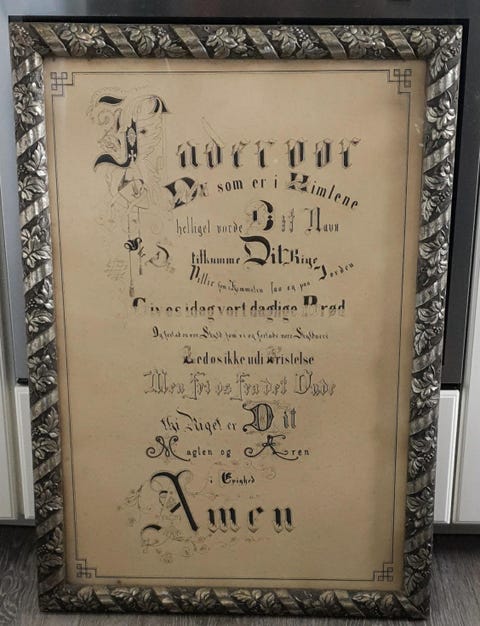 Fader vor
Du som er i Himlene
helliget vorde Dit Navn
tilkomme Dit Rige
Villie som i Himmelen saa og paa Jorden
Giv os idag vort daglige Brød
Og forlad os vor Skyld som vi og forlade vore Skyldnere
Led os ikke udi Fristelse
Men fri os fra det Onde
thi Riget er Dit
Magten og Æren
i Evighed
Amen